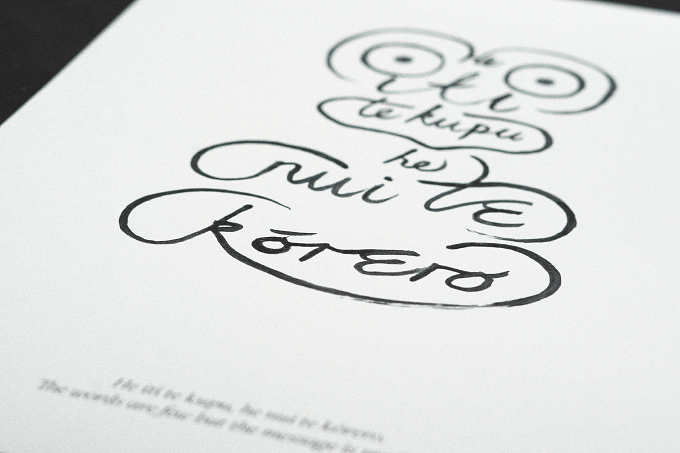 He
iti
te kupu
he
nui te
kōrero
He iti te kupu, he nui te kōrero.
The words are few but the message is